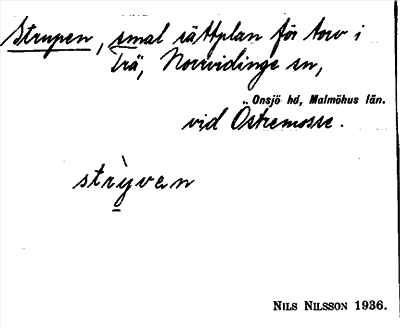 Strupen, smal rättplan för torv i
Trä, Norrvidinge sn,
Onsjö hd, Malmöhus län.
vid Östremosse.
strỳvan
NILS NILSSON 1936.